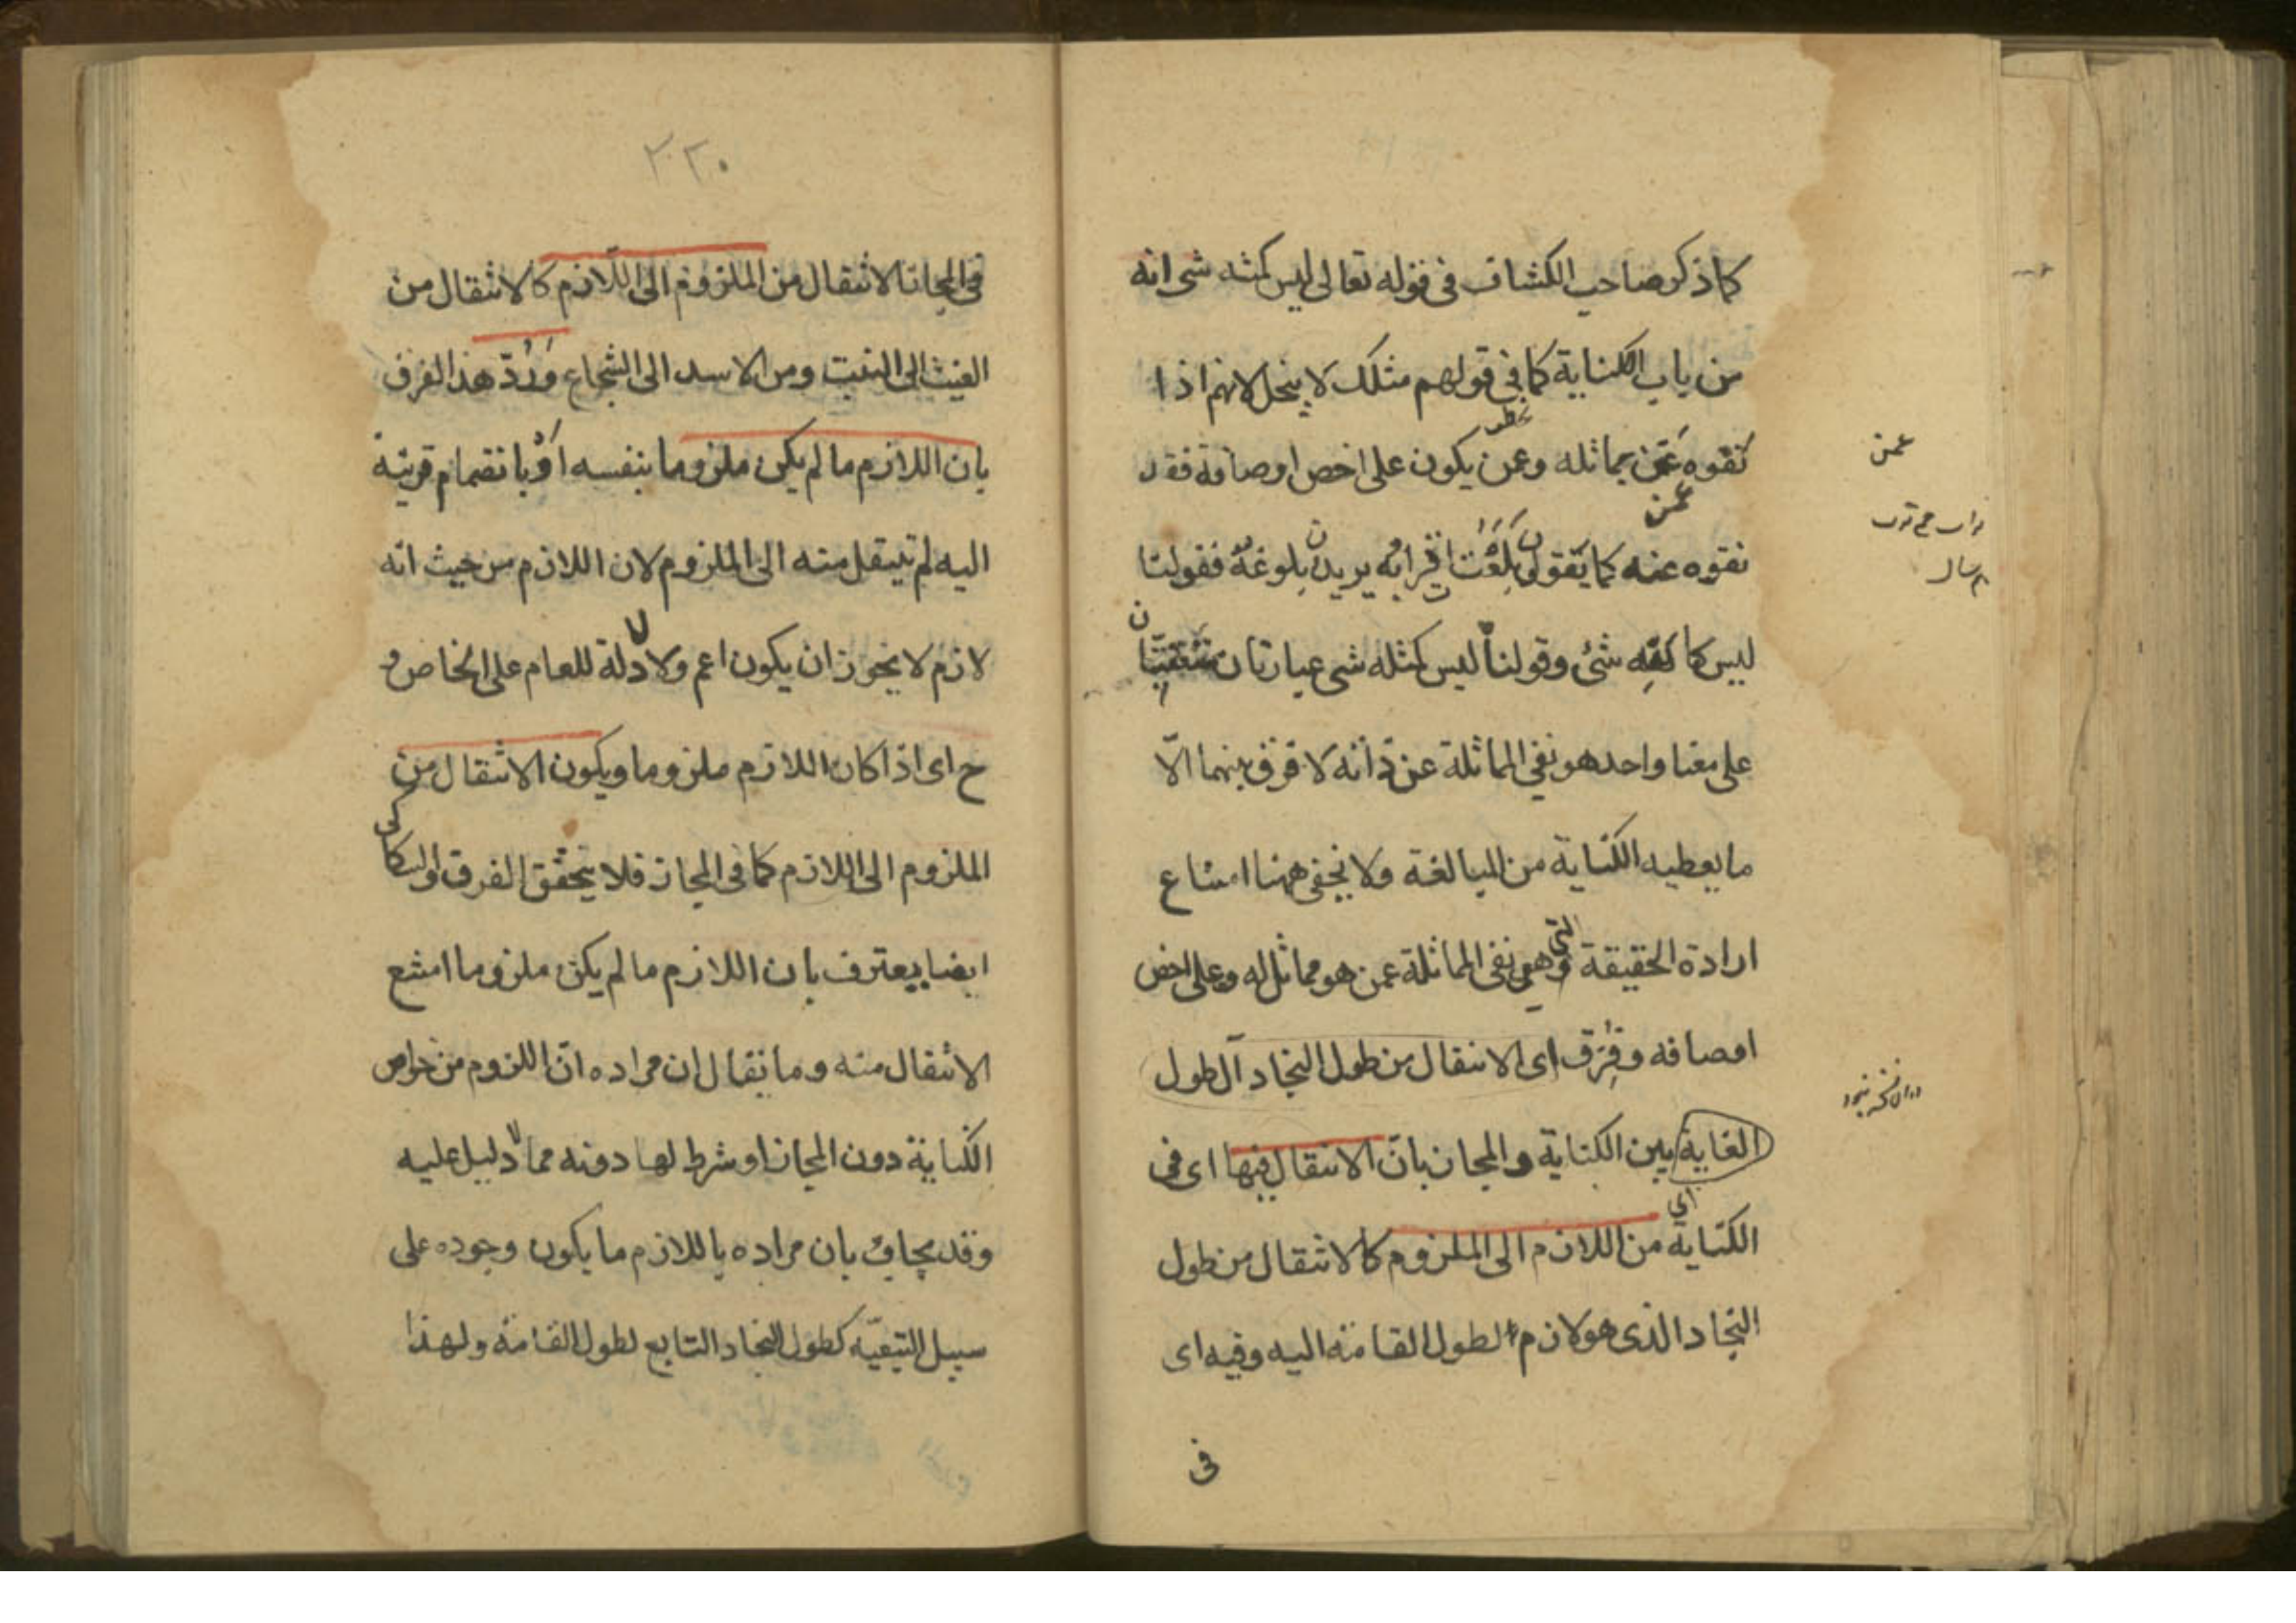 كما ذكر صاحب الكشاف فى قوله تعالى ليس كمثه شى انه
من باب الكناية كما فى قولهم مثلك لا يبخل لانهم اذا
نفوه عمن يماثله وعمن يكون على اخص اوصافه فقد
عمن
نفوه عنه كما يقولون بلغت اترابه يريدون بلوغه فقولنا
ليس كا لله شئ وقولنا ليس كمثله شى عبارتان متعقبتان
على معنا واحد هو نفى المماثلة عن ذاته لا فرق بينهما الّا
ما يعطيه الكناية من المبالغة ولا يخفى ههنا امتناع
ارادة الحقيقة التى وهى نفى المماثلة عمن هو مماثل له وعلى اخص
اوصافه وفرق اى الانتقال من طول النجاد آل طول
الغاية بين الكناية والمجاز بانّ الانتقال فيها اى فى
اى
الكناية من اللازم الى الملزوم كالانتقال من طول
النجاد الذى هو لازم لطول القامة اليه وفيه اى
فى
عمن
٢٢٠
فى المجاز الانتقال من الملزوم الى اللّازم كالانتقال من
الغيث الى النبت ومن الاسد الى الشجاع وَرُدّ هذا الفرق
بان اللازم ما لم يكن ملزوما بنفسه اوْ بانضمام قرينة
اليه لم ينتقل منه الى الملزوم لان اللازم من حيث انه
لازم لا يجوز ان يكون اعم ولا دلالة للعام على الخاص و
ح اى اذا كان اللازم ملزوما ويكون الانتقال من
الملزوم الى اللازم كما فى المجاز فلا يتحقق الفرق والسكاكى
ايضا يعترف بان اللازم ما لم يكن ملزوما امتنع
الانتقال منه وما يقال ان مراده انّ اللزوم من خواص
الكناية دون المجاز او شرط لها دونه مما لا دليل عليه
وقد يجاب بان مراده باللازم ما يكون وجوده على
سبيل التبعيّه كطول النجاد التابع لطول القامة ولهذا